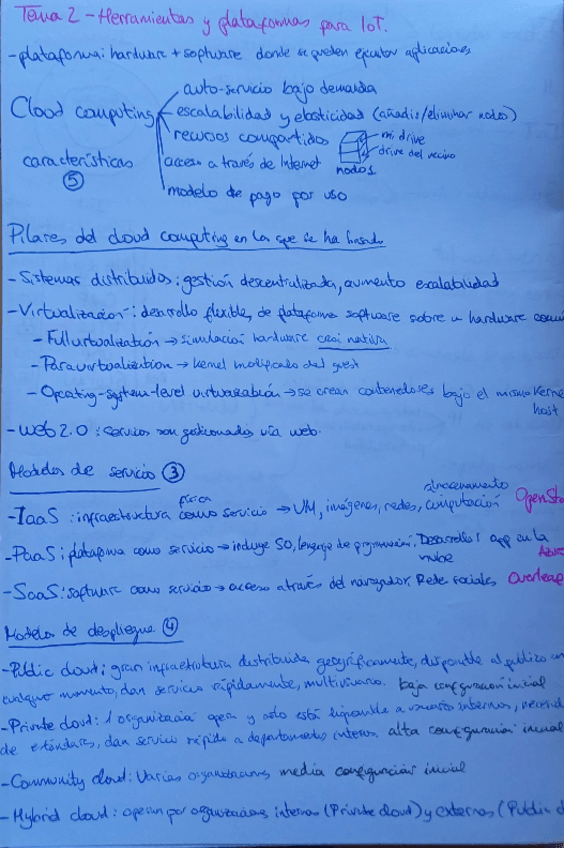 Tema 2 - Herramientas y plataformas para IoT.
- plataforma: hardware + software donde se pueden ejecutar aplicaciones
auto-servicio bajo demanda
Cloud computing escalabilidad y elasticidad (añadir/eliminar nodos)
recursos compartidos mi drive
drive del vecino
características acceso a través de Internet nodos
5
modelo de pago por uso
Pilares del cloud computing en la que se ha basado
- Sistemas distribuidos: gestión descentralizada, aumento escalabilidad
- Virtualización: desarrollo flexible, de plataforma software sobre un hardware
- Full virtualización → simulación hardware casi nativa
- Paravirtualization → Kernel modificado del guest
- Operating-system-level virtualización → se crean contenedores bajo el mismo
host
- Web 2.0: servicios son gestionados vía web.
Modelos de servicio 3
física almacenamiento
- IaaS: infraestructura como servicio → VM, imágenes, redes, computación
- PaaS: plataforma como servicio → incluye SO, lenguaje de programación. Desarrollar app en la
nube
- SaaS: software como servicio → acceso a través del navegador. Rede sociales, Overleaf
Modelos de despliegue 4
- Public cloud: gran infraestructura distribuida geográficamente, disponible al publico en
cualquier momento, dan servicio rápidamente, multiusuario. baja configuración inicial
- Private cloud: 1 organización opera y solo está disponible a usuarios internos,
de estándares, dan servicio rápido a departamentos internos. alta configuración inicial
- Community cloud: Varias organizaciones media configuración inicial
- Hybrid cloud: operan por organizaciones internas (Private cloud) y externas (Public